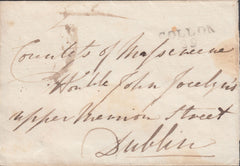 COLLON
Countess of Massereene
Honble John Jocelyn's
upper Merrion Street
Dublin